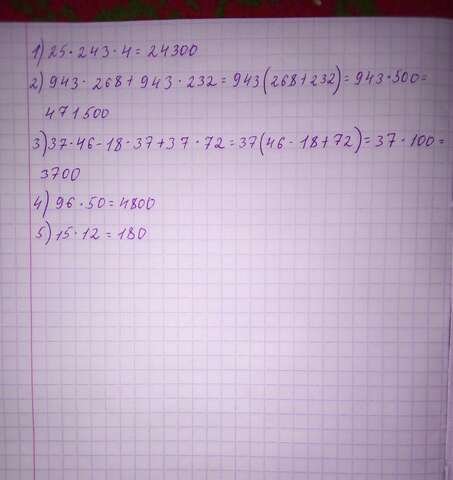 1) 25 · 243 · 4 = 24300
2) 943 · 268 + 943 · 232 = 943(268 + 232) = 943 · 500 =
471500
3) 37 · 46 - 18 · 37 + 37 · 72 = 37(46 - 18 + 72) = 37 · 100 =
3700
4) 96 · 50 = 4800
5) 15 · 12 = 180